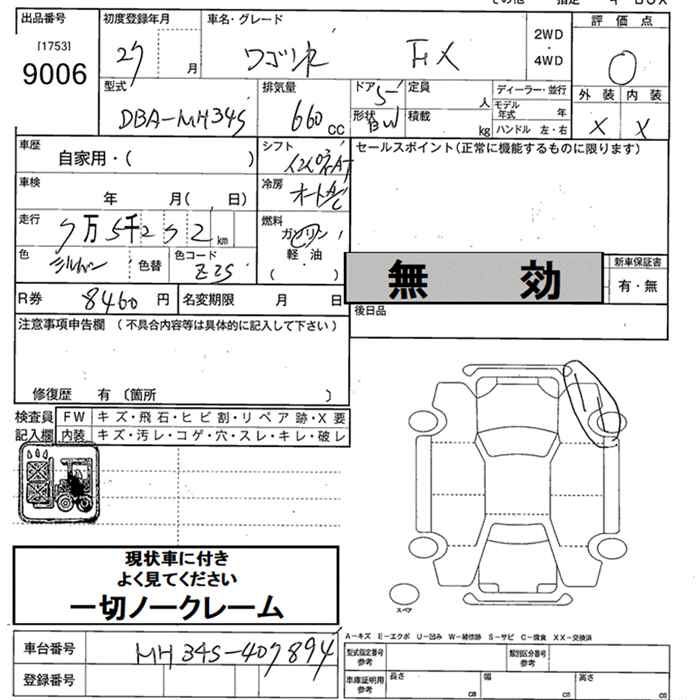 出品番号
[1753]
9006
初度登録年月
27 月
車名・グレード
ワゴンR FX
2WD
・
4WD
評価点
0
外装 内装
X X
型式
DBA-MH34S
排気量
660 CC
ドア 5
形状 BW
定員
人
積載
kg
ディーラー・並行
モデル年式 年
ハンドル 左・右
車歴
自家用・( )
シフト
冷房
オートA/C
セールスポイント(正常に機能するものに限ります)
車検
年 月( 日)
走行
7万5千232km
燃料
ガソリン
軽油
( )
色
シルバー
色替
色コード
Z2S
無効
新車保証書
有・無
R券 8460円
名変期限 月 日
後日品
注意事項申告欄 (不具合内容等は具体的に記入して下さい)
修復歴 有 〔箇所 〕
検査員
記入欄
FW キズ・飛石・ヒビ割・リペア跡・X要
内装 キズ・汚レ・コゲ・穴・スレ・キレ・破レ
現状車に付き
よく見てください
一切ノークレーム
スペア
A-キズ E-エクボ U-凹み W-補修跡 S-サビ C-腐食 XX-交換済
車台番号 MH34S-407894
登録番号
型式指定番号
参考
類別区分番号
参考
車庫証明用
参考
長さ cm
幅 cm
高さ cm